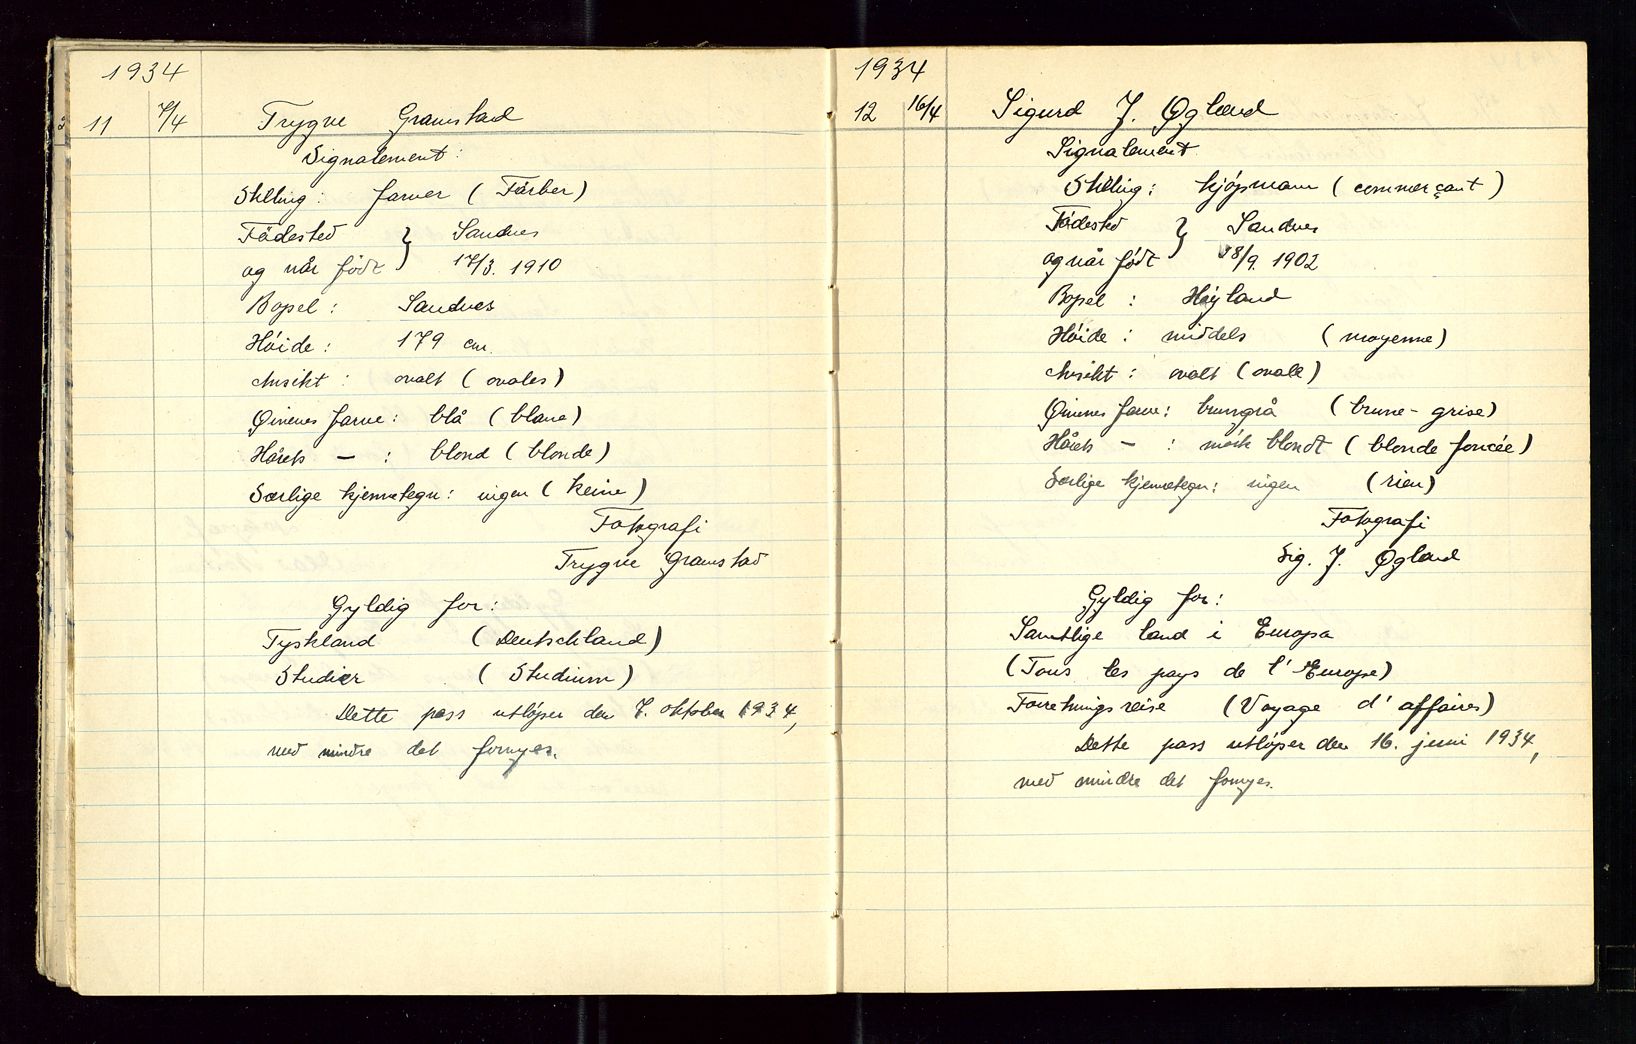 1934
11 7/4 Trygve Gramstad
Signalement:
Stilling: farver (Färber)
Födested } Sandnes
og når født } 17/3. 1910
Bopel: Sandnes
Høide: 179 cm.
Ansikt: ovalt (ovales)
Øinenes farve: blå (blaue)
Hårets — : blond (blonde)
Særlige kjennetegn: ingen (keine)
Fotografi
Trygve Gramstad
Gyldig for:
Tyskland (Deutschland)
Studier (Studium)
Dette pass utløper den 7. oktober 1934,
med mindre det fornyes.
1934
12 16/4 Sigurd J. Øglænd
Signalement
Stilling: kjøpmann (commerçant)
Fødested } Sandnes
og når født } 18/9. 1902
Bopel: Høyland
Høide: middels (moyenne)
Ansikt: ovalt (ovale)
Øinenes farve: brungrå (brune-grise)
Hårets — : mørk blondt (blonde foncée)
Særlige kjennetegn: ingen (rien)
Fotografi
Sig. J. Øgland
Gyldig for:
Samtlige land i Europa
(Tous les pays de l'Europe)
Forretningsreise (Voyage d'affaires)
Dette pass utløper den 16. juni 1934,
med mindre det fornyes.